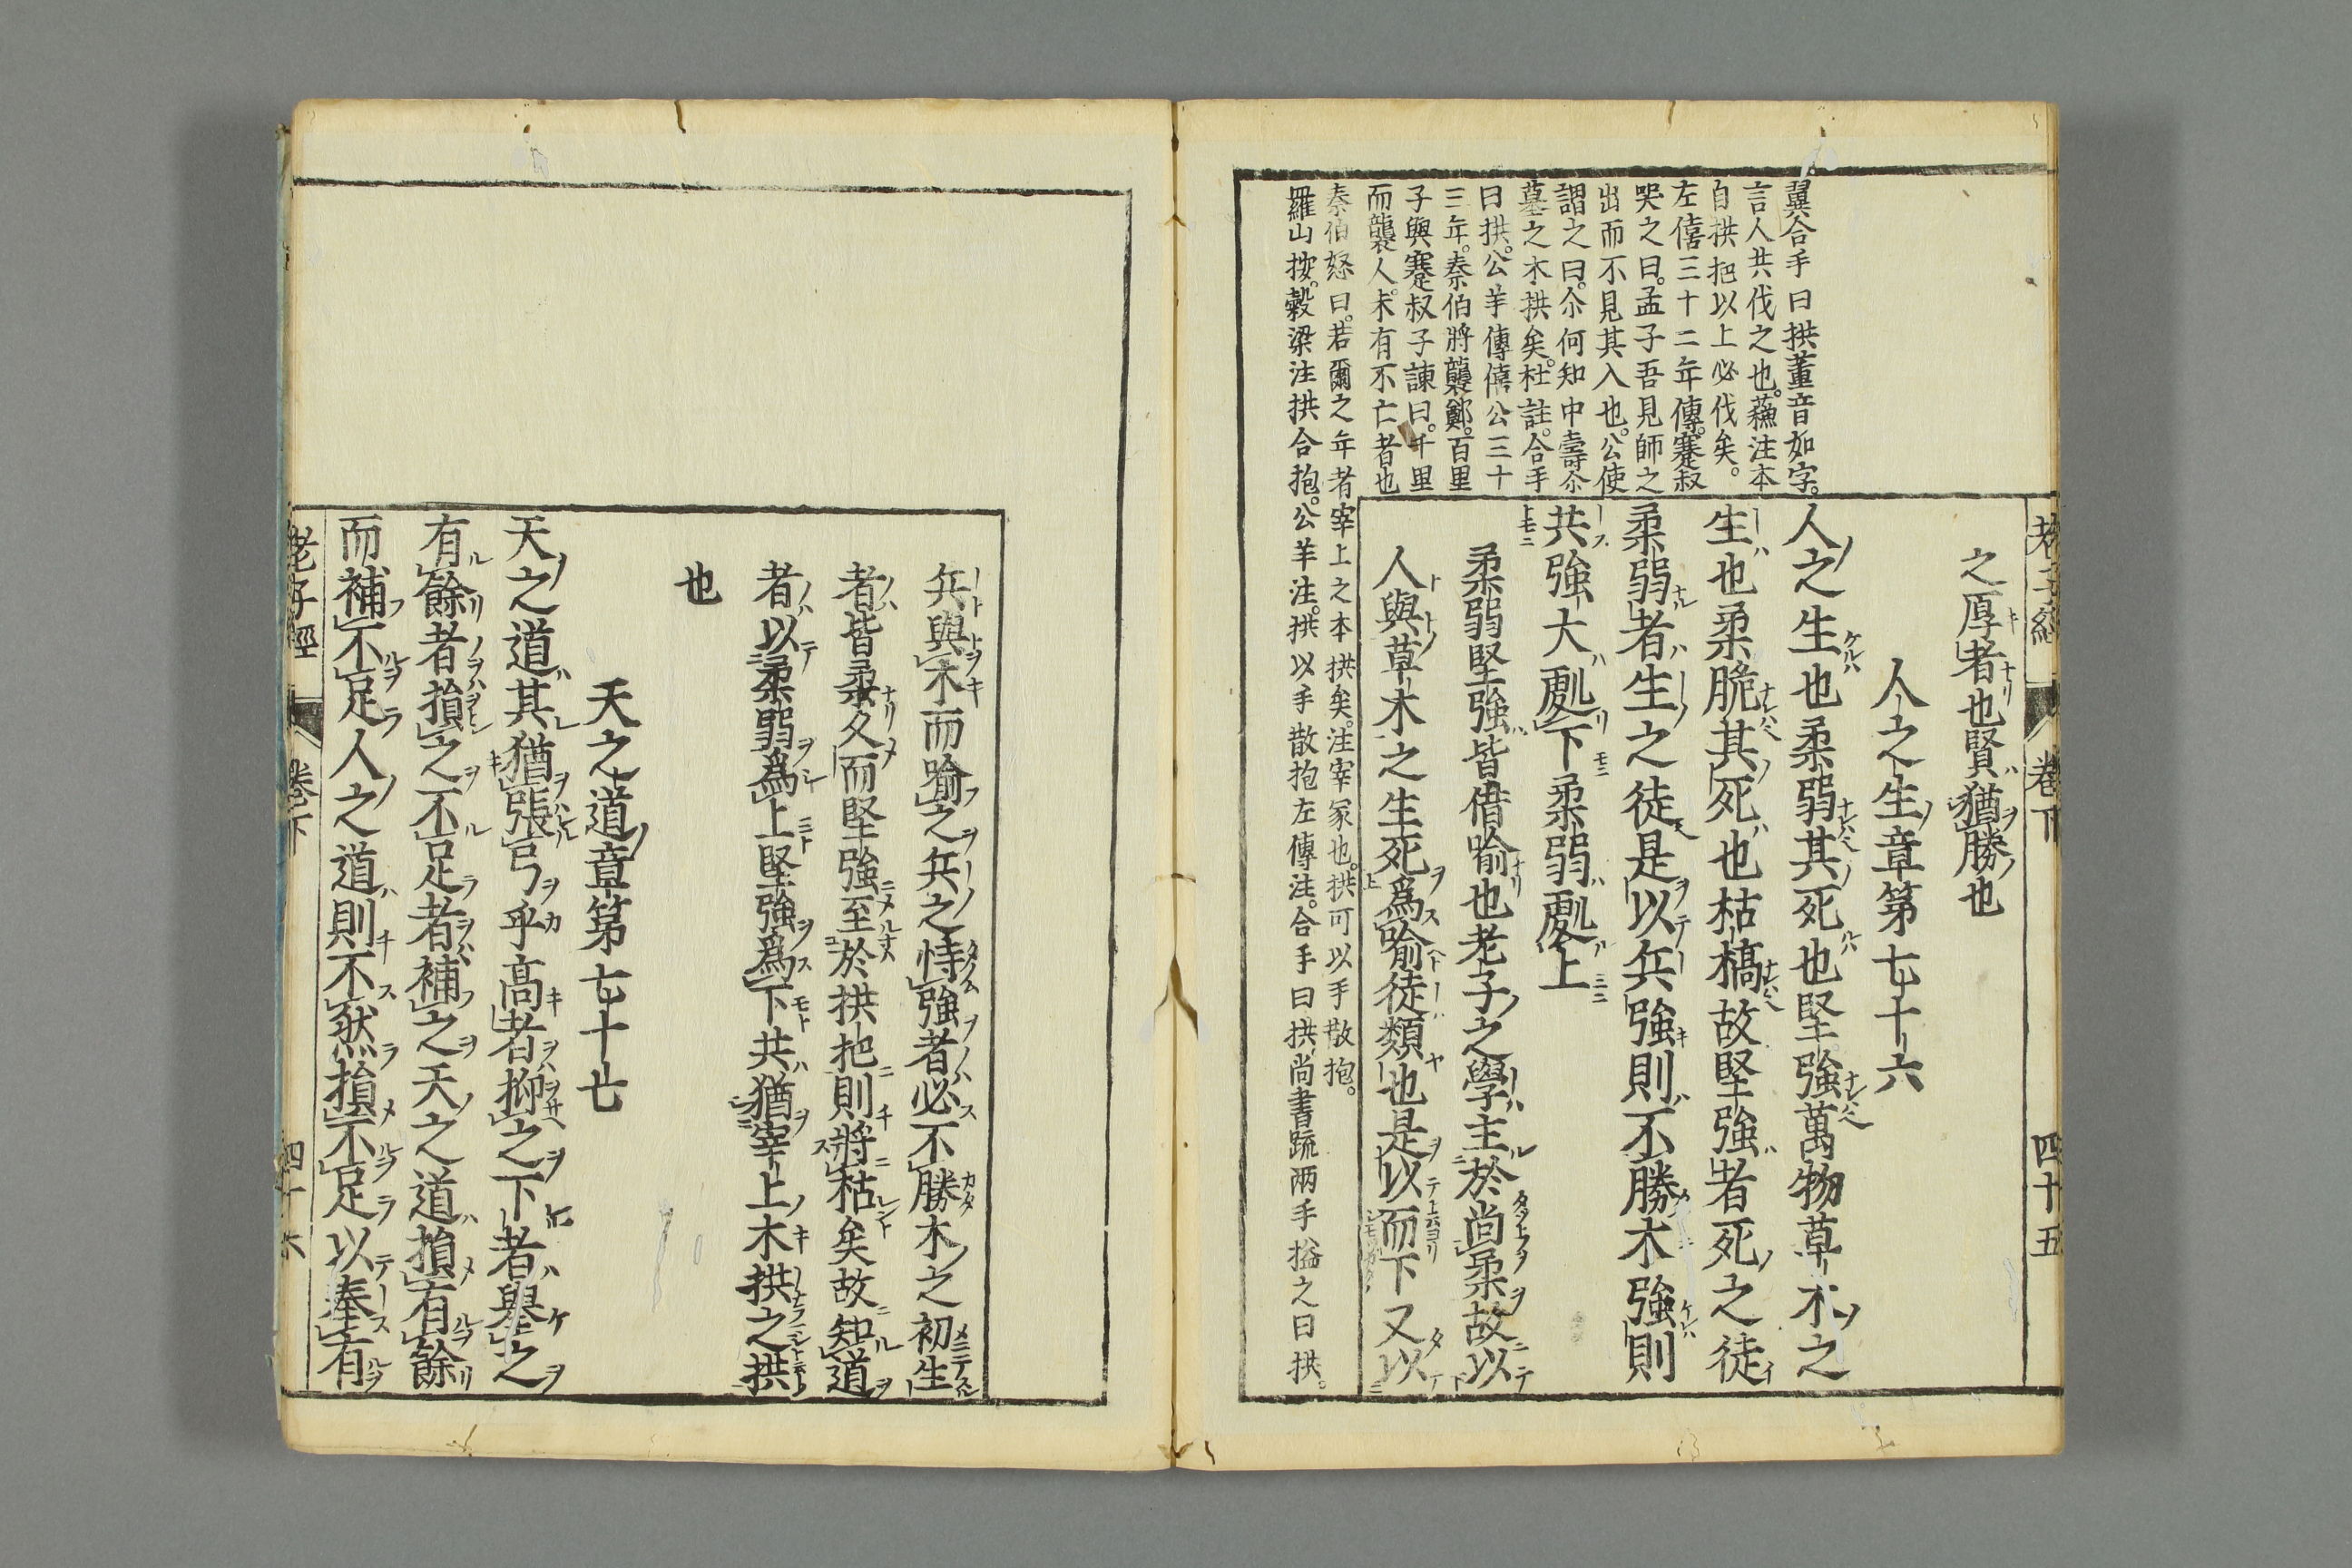 老子經 卷下 四十五
之厚者也賢猶勝也
人之生章第七十六
人之生也柔弱其死也堅強萬物草木之
生也柔脆其死也枯槁故堅強者死之徒
柔弱者生之徒是以兵強則不勝木強則
共強大處下柔弱處上
柔弱堅強皆借喻也老子之學主於尚柔故以
人與草木之生死爲喻徒類也是以而下又以
翼合手曰拱董音如字。
言人共伐之也。蘓注本
自拱把以上必伐矣。
左僖三十二年傳。蹇叔
哭之曰。孟子吾見師之
出而不見其入也。公使
謂之曰。尒何知中壽尒
墓之木拱矣。杜註。合手
曰拱。公羊傳僖公三十
三年。秦伯將襲鄭。百里
子與蹇叔子諫曰。千里
而襲人。未有不亡者也
秦伯怒曰。若爾之年者宰上之木拱矣。注宰冢也。拱可以手散抱。
羅山按。穀梁注拱合抱。公羊注。拱以手散抱左傳注。合手曰拱。尚書疏兩手搤之曰拱。
兵與木而喻之兵之恃強者必不勝木之初生
者皆柔久而堅強至於拱把則將枯矣故知道
者以柔弱爲上堅強爲下共猶宰上木拱之拱
也
天之道章第七十七
天之道其猶張弓乎高者抑之下者擧之
有餘者損之不足者補之天之道損有餘
而補不足人之道則不然損不足以奉有
老子經 卷下 四十六